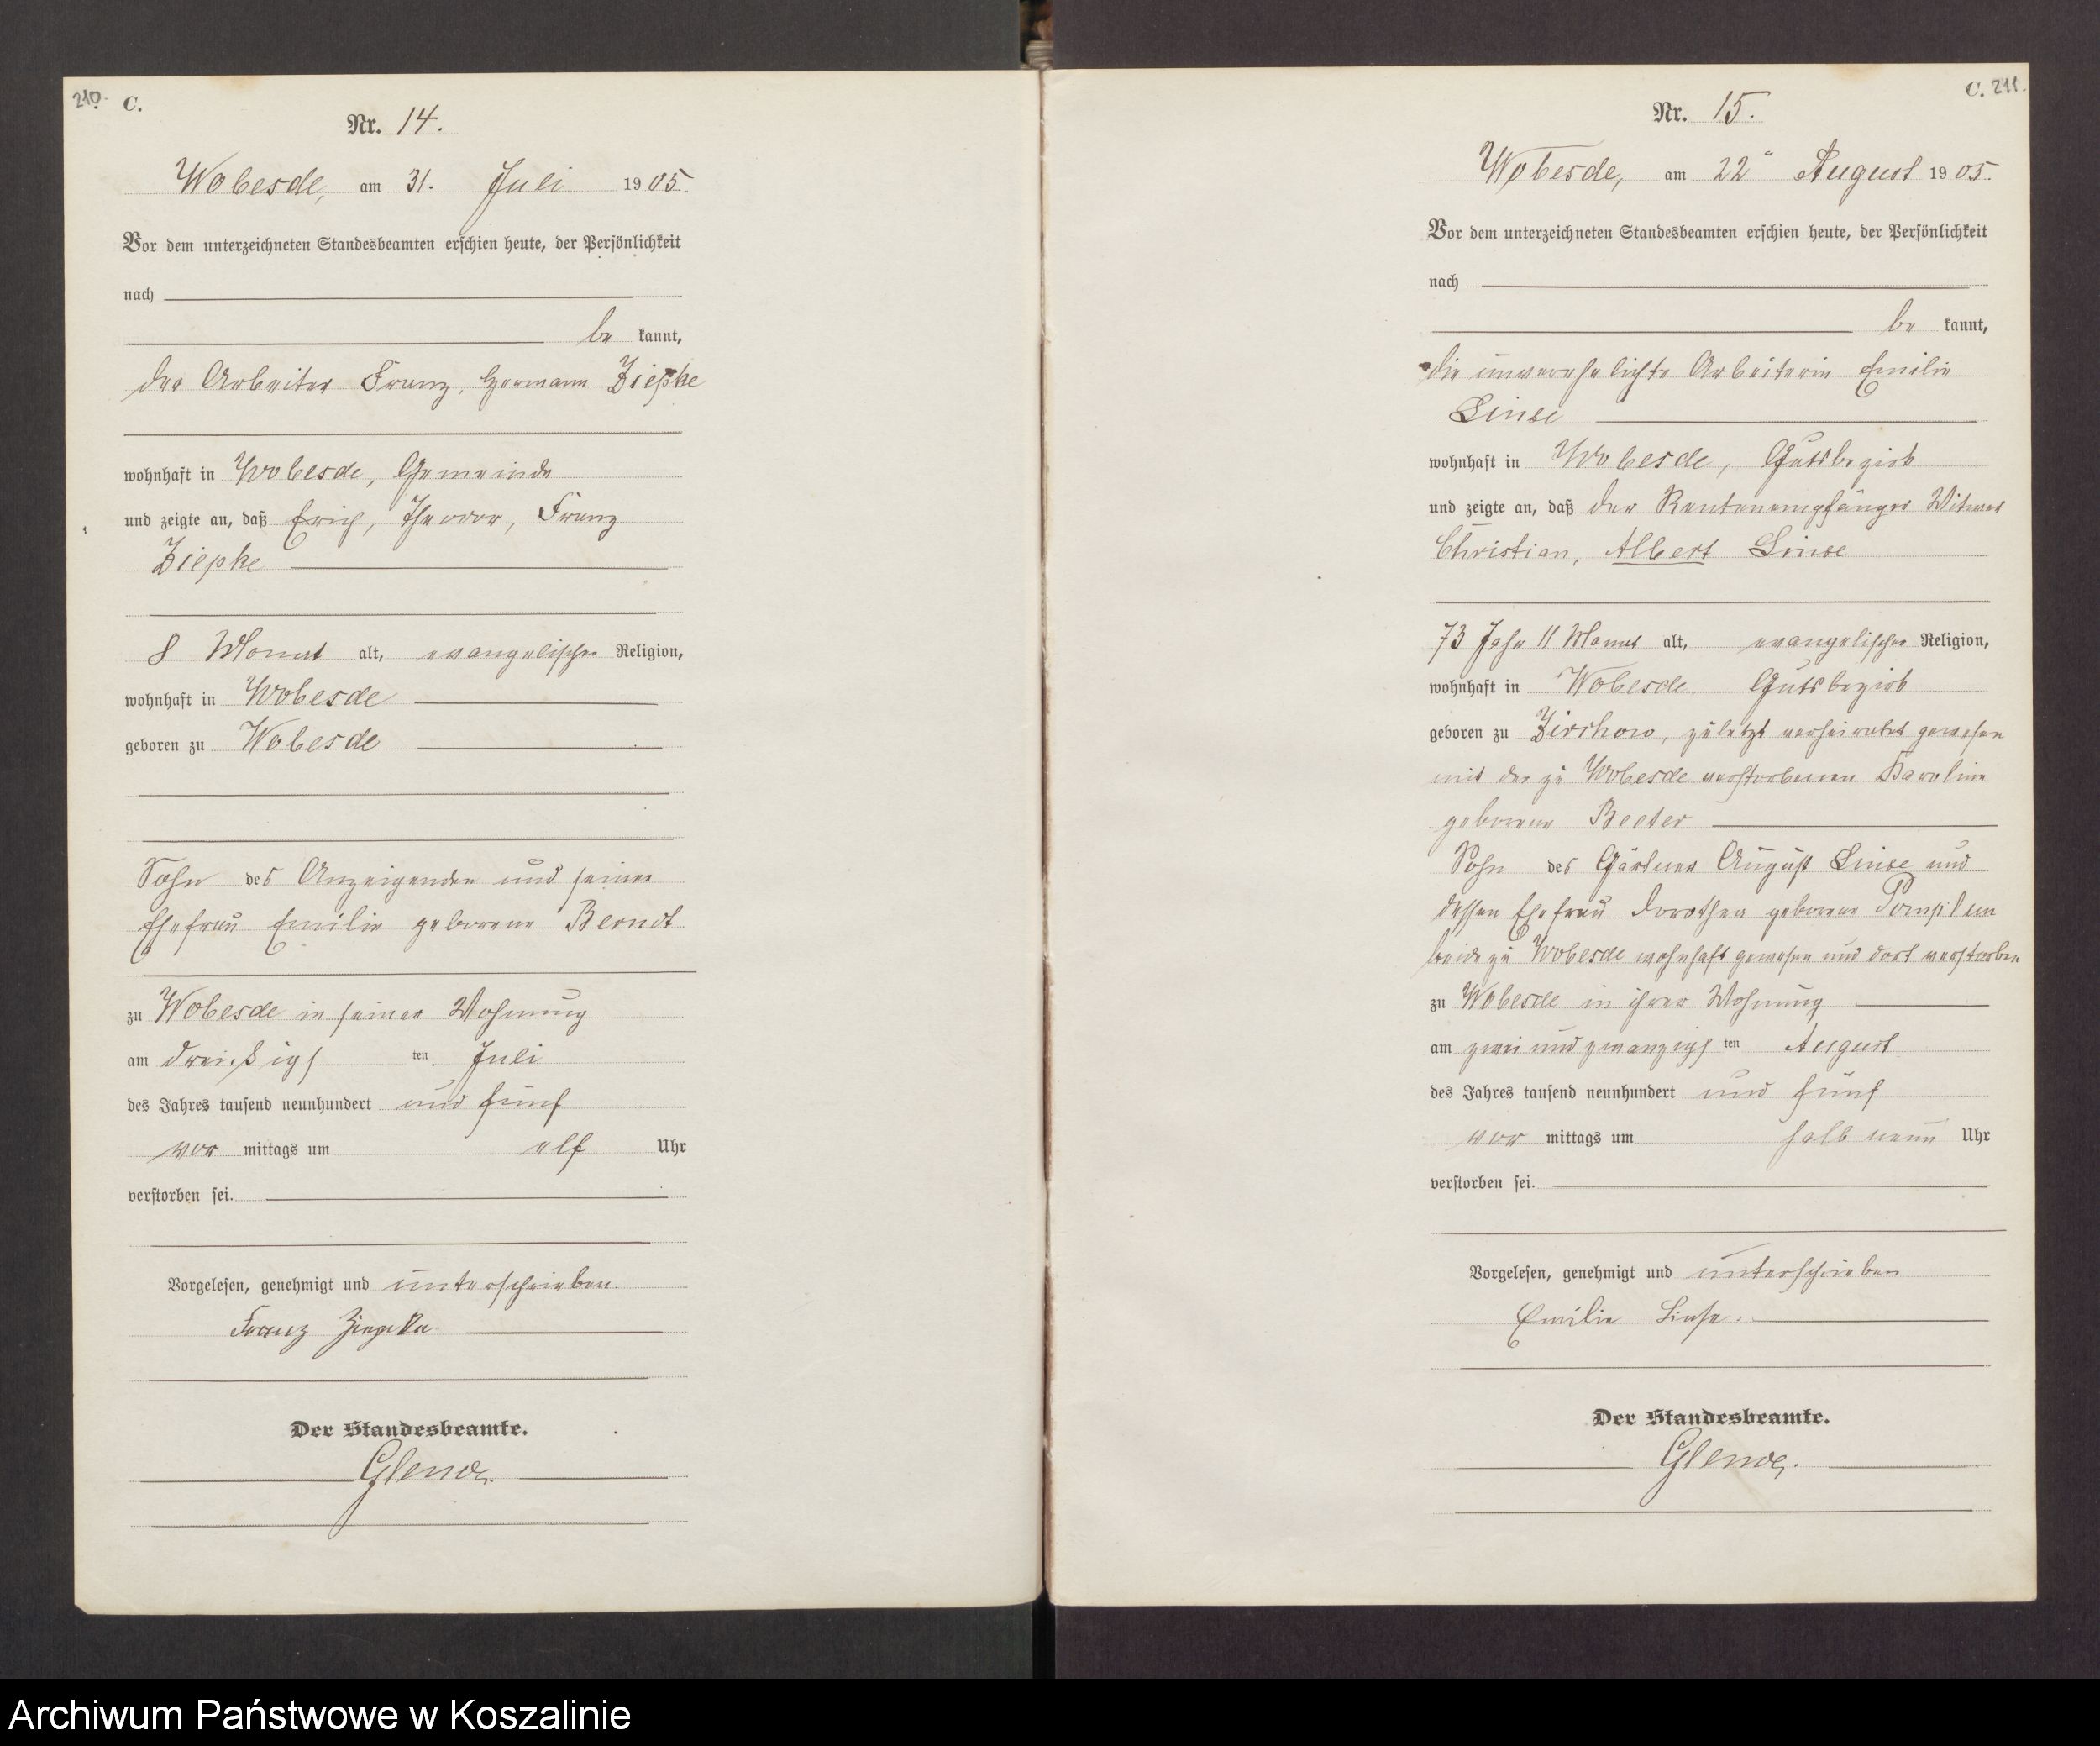 210. C.
Nr. 14.
Wobesde, am 31. Juli 1905.
Vor dem unterzeichneten Standesbeamten erschien heute, der Persönlichkeit
nach
be kannt,
der Arbeiter Franz, Hermann Ziepke
wohnhaft in Wobesde, Gemeinde
und zeigte an, daß Erich, Theodor, Franz
Ziepke
8 Monat alt, evangelischer Religion,
wohnhaft in Wobesde
geboren zu Wobesde
Sohn des Anzeigenden und seiner
Ehefrau Emilie geborene Berndt
zu Wobesde in seiner Wohnung
am dreißigs ten Juli
des Jahres tausend neunhundert und fünf
vor mittags um elf Uhr
verstorben sei.
Vorgelesen, genehmigt und unterschrieben.
Franz Ziepke
Der Standesbeamte.
C. 211.
Nr. 15.
Wobesde, am 22ⁿ August 1905.
Vor dem unterzeichneten Standesbeamten erschien heute, der Persönlichkeit
nach
be kannt,
die unverehelichte Arbeiterin Emilie
Linse
wohnhaft in Wobesde, Gutsbezirk
und zeigte an, daß der Rentenempfänger Witwer
Christian, Albert Linse
73 Jahr 11 Monat alt, evangelischer Religion,
wohnhaft in Wobesde Gutsbezirk
geboren zu Zirchow, zuletzt verheiratet gewesen
mit der zu Wobesde verstorbenen Karoline
geborene Beeter
Sohn des Gärtner August Linse und
dessen Ehefrau Dorothea geborene
beide zu Wobesde wohnhaft gewesen und dort verstorben
zu Wobesde in ihrer Wohnung
am zwei und zwanzigs ten August
des Jahres tausend neunhundert und fünf
vor mittags um halb neun Uhr
verstorben sei.
Vorgelesen, genehmigt und unterschrieben
Emilie Linse.
Der Standesbeamte.
Archiwum Państwowe w Koszalinie